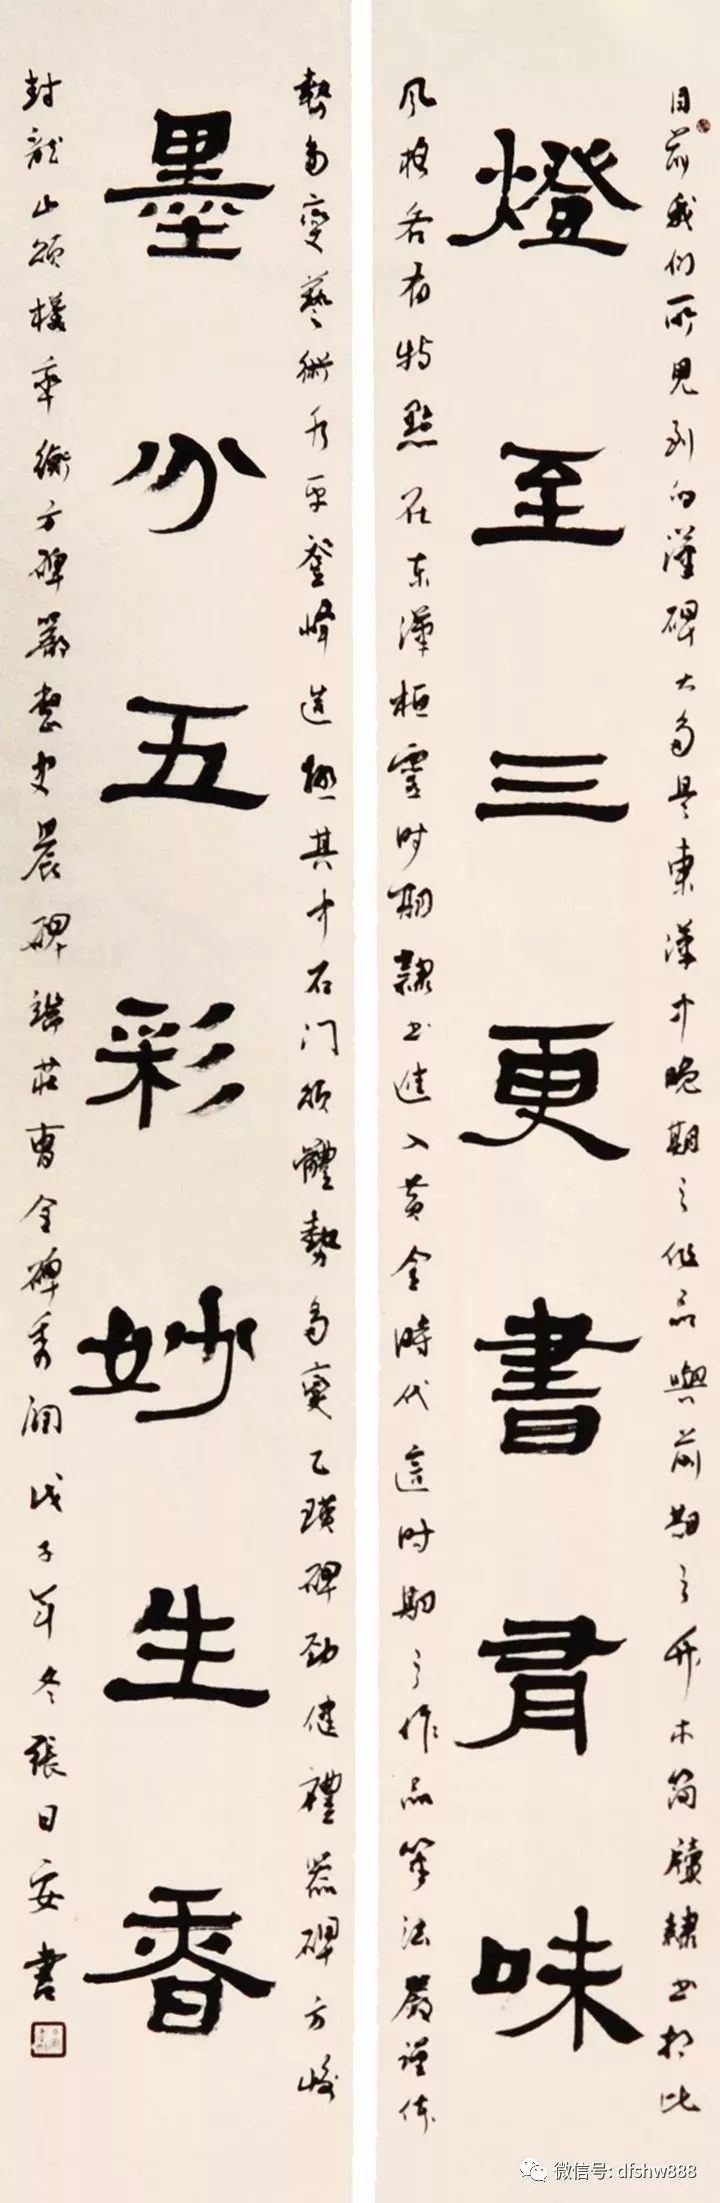 目前我们所見到的漢碑大多是東漢中晚期之作品與前期之竹木简牘隸书相比
燈至三更書有味
风格各有特點在东漢桓靈时期隸书進入黄金時代這时期之作品笔法嚴謹体
勢多變藝術水平登峰造極其中石门颂體勢多變乙瑛碑劲健禮器碑方峻
墨分五彩妙生香
封龍山頌樸率衡方碑嚴整史晨碑端莊曹全碑秀润戊子年冬張日安書
微信号: dfshw888